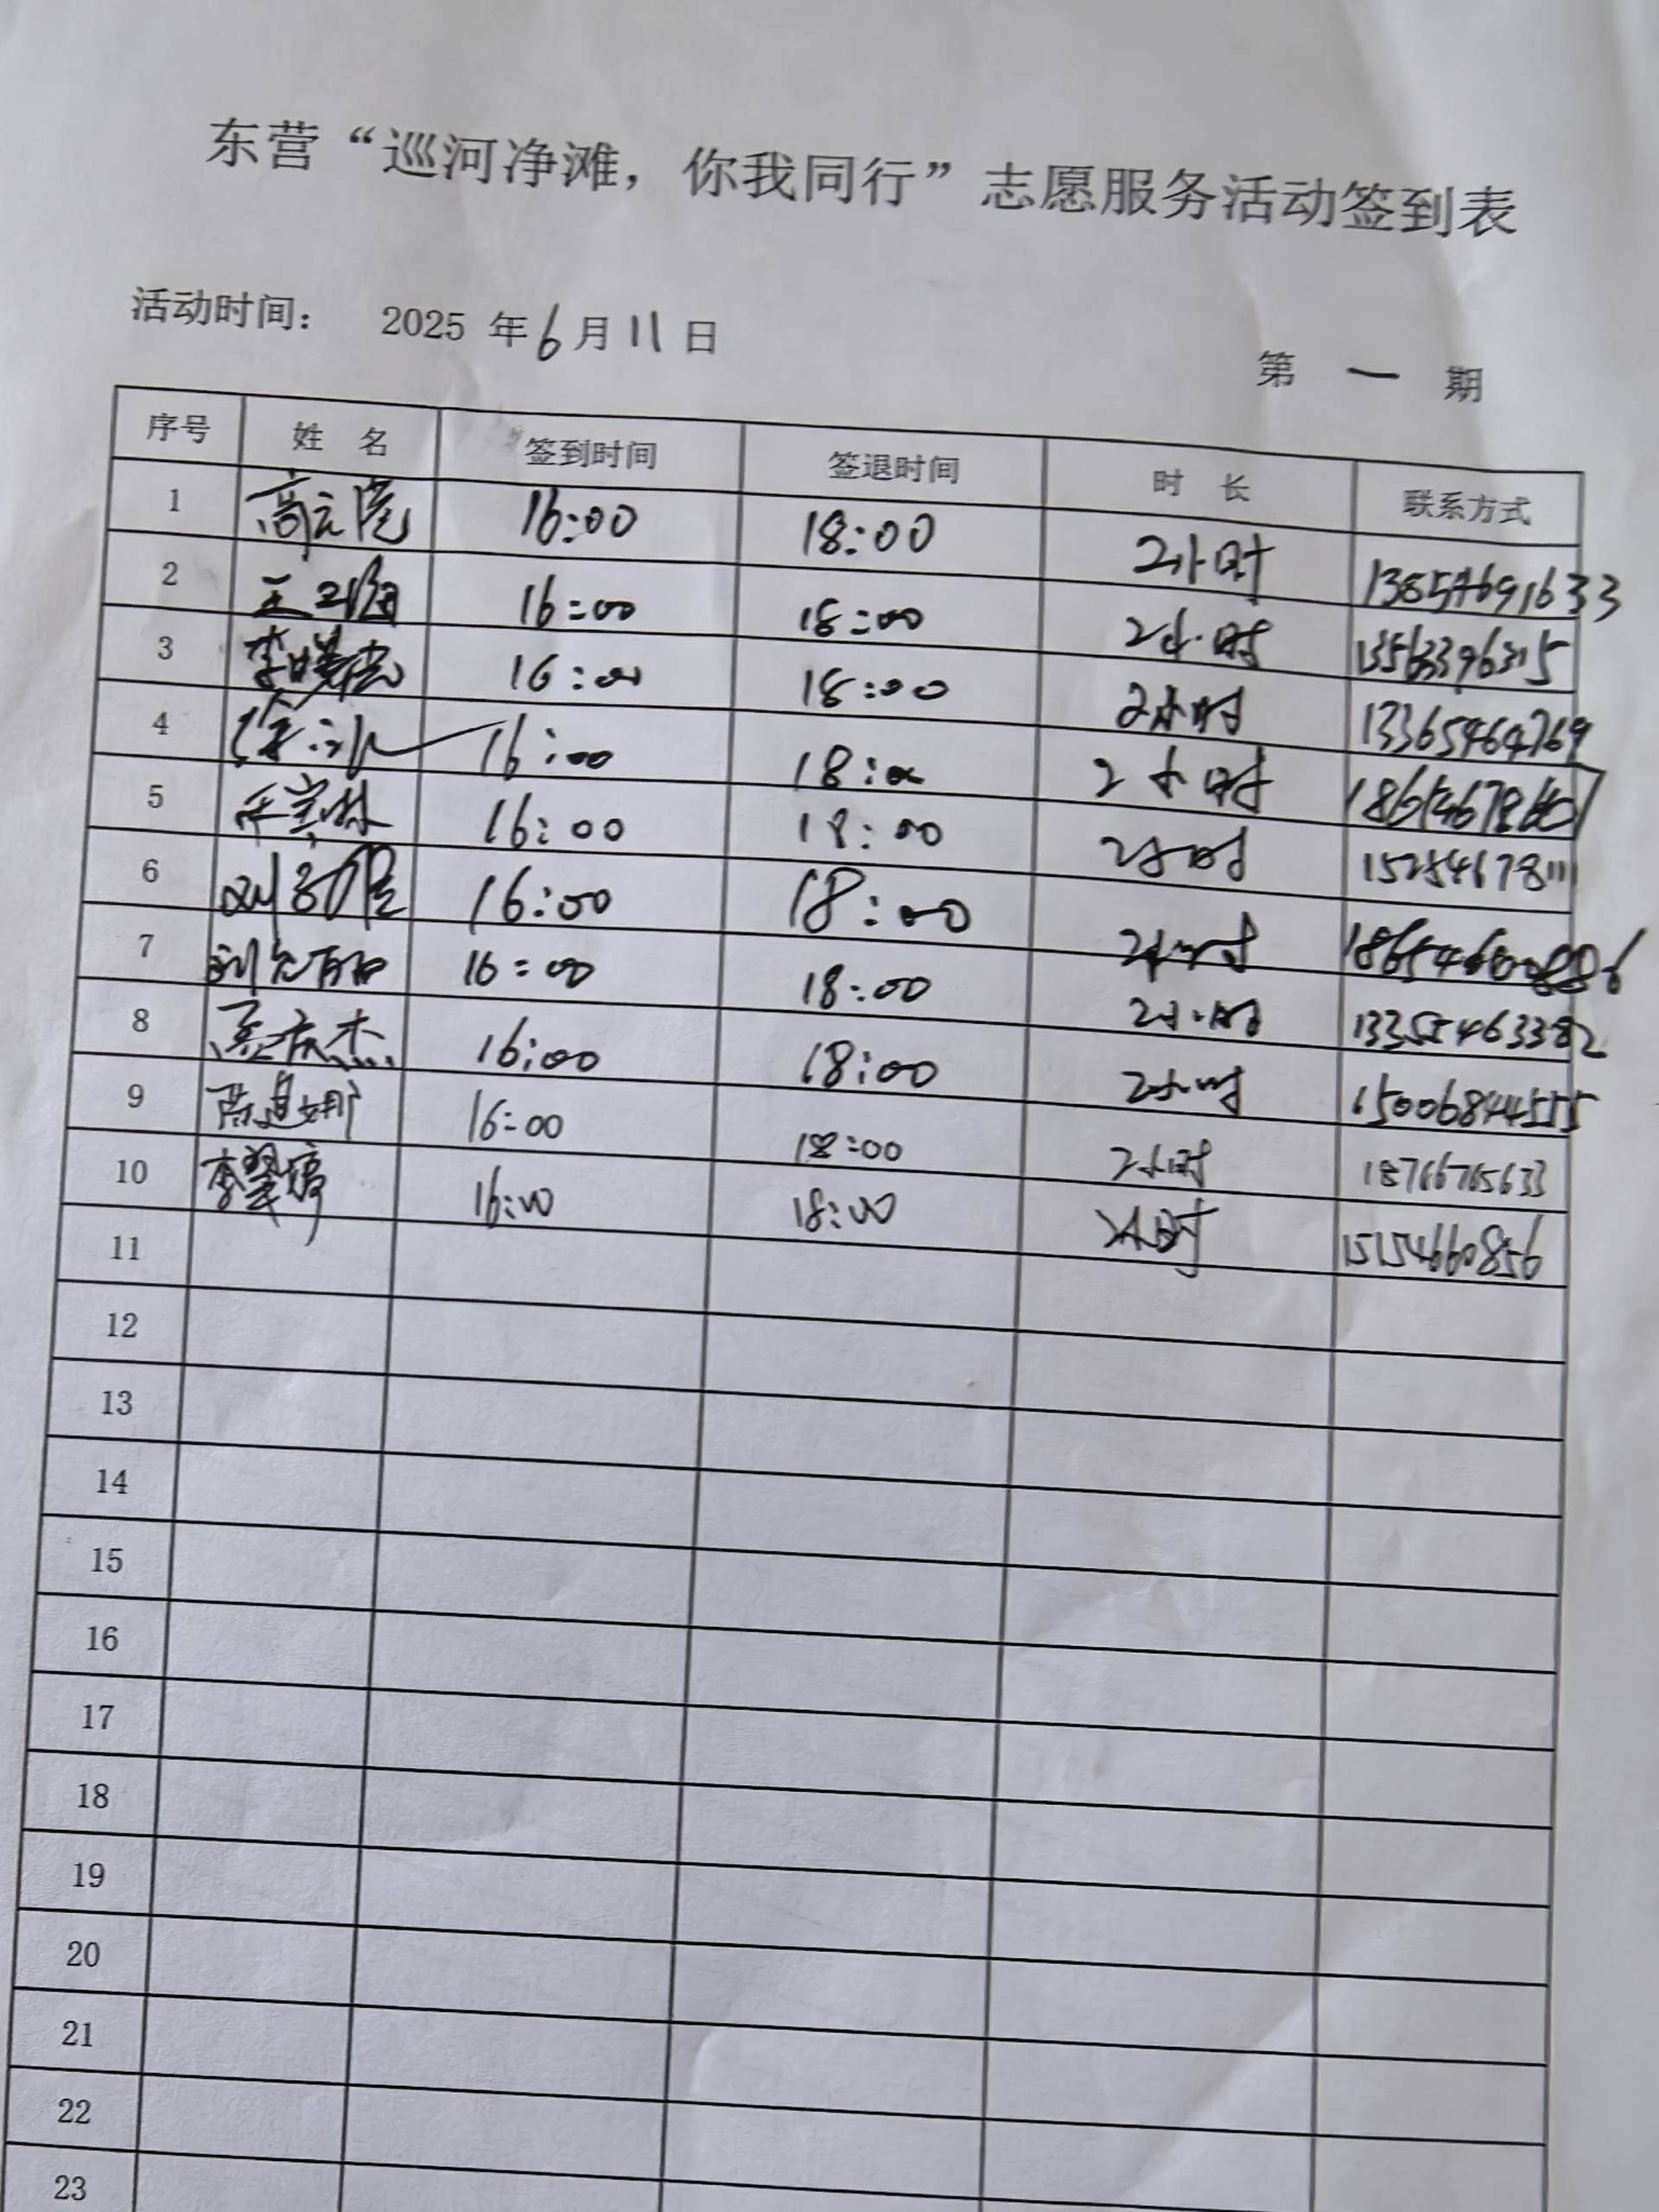 东营“巡河净滩，你我同行”志愿服务活动签到表
活动时间： 2025 年 6 月 11 日
第 一 期
序号 姓 名 签到时间 签退时间 时 长 联系方式
1 16:00 18:00 2小时 13854691633
2 16:00 18:00 2小时
3 16:00 18:00 2小时 13365464769
4 徐冰 16:00 18:00 2小时
5 16:00 18:00 2小时 15254678111
6 16:00 18:00 2小时 18654660886
7 16:00 18:00 2小时 13355463382
8 16:00 18:00 2小时 15006844555
9 16:00 18:00 2小时 18766765633
10 李翠婷 16:00 18:00 2小时 15154660856
11
12
13
14
15
16
17
18
19
20
21
22
23